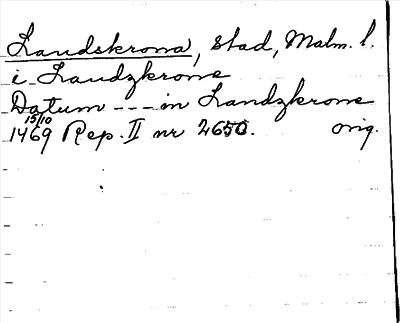 Landskrona, stad, Malm. l.
i Landzkrone
Datum --- in Landzkrone
15/10
1469 Rep. II nr 2650. orig.